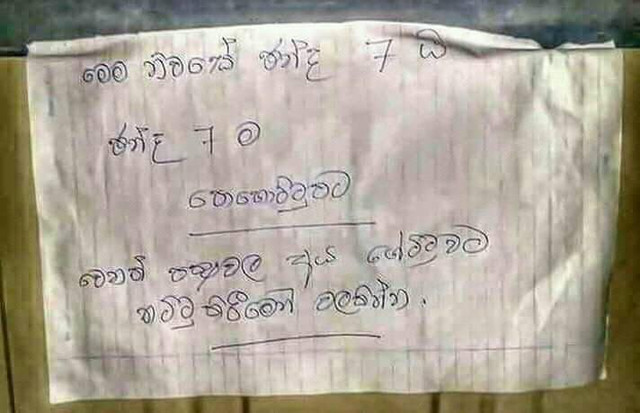 මෙම නිවසේ ඡන්ද 7 යි
ඡන්ද 7 ම
පොහොට්ටුවට
වෙනත් පක්ෂවල අය ගේට්ටුවට
තට්ටු කිරීමෙන් වලකින්න.